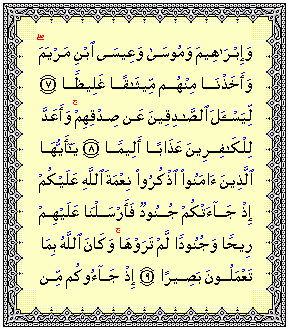 وَإِبْرَٰهِيمَ وَمُوسَىٰ وَعِيسَى ٱبْنِ مَرْيَمَ ۖ
وَأَخَذْنَا مِنْهُم مِّيثَٰقًا غَلِيظًا ٧
لِّيَسْـَٔلَ ٱلصَّٰدِقِينَ عَن صِدْقِهِمْ ۚ وَأَعَدَّ
لِلْكَٰفِرِينَ عَذَابًا أَلِيمًا ٨ يَٰٓأَيُّهَا
ٱلَّذِينَ ءَامَنُوا۟ ٱذْكُرُوا۟ نِعْمَةَ ٱللَّهِ عَلَيْكُمْ
إِذْ جَآءَتْكُمْ جُنُودٌ فَأَرْسَلْنَا عَلَيْهِمْ
رِيحًا وَجُنُودًا لَّمْ تَرَوْهَا ۚ وَكَانَ ٱللَّهُ بِمَا
تَعْمَلُونَ بَصِيرًا ٩ إِذْ جَآءُوكُم مِّن